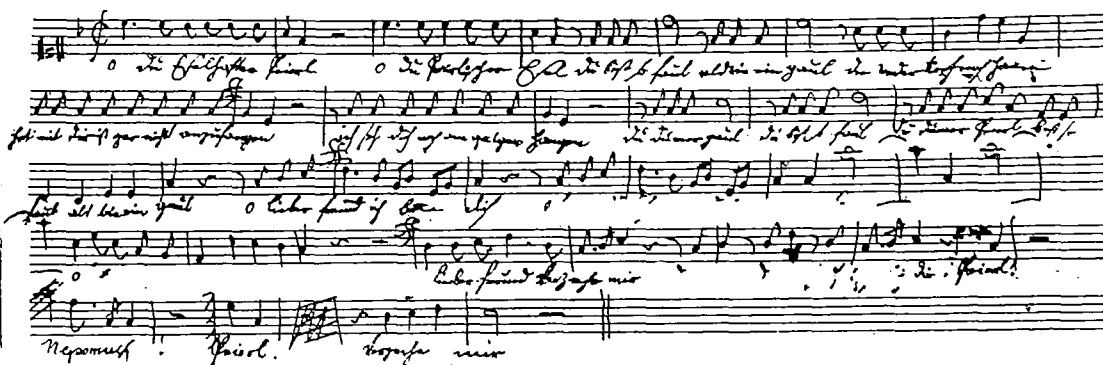 o du Eselhafter Peierl o du Peierlischer Esel du bist so faul als wie ein gaul der weder kopf noch haxen
hat mit dir ist gar nicht anzufangen ich seh dich noch am galgen hangen du dumer gaul du bist so faul du dumer Peierl bist so
faul als wie ein gaul o lieber freund ich bitte dich o
o lieber freund verzeihe mir Peierl:
Nepomuk! Peierl. verzeihe mir